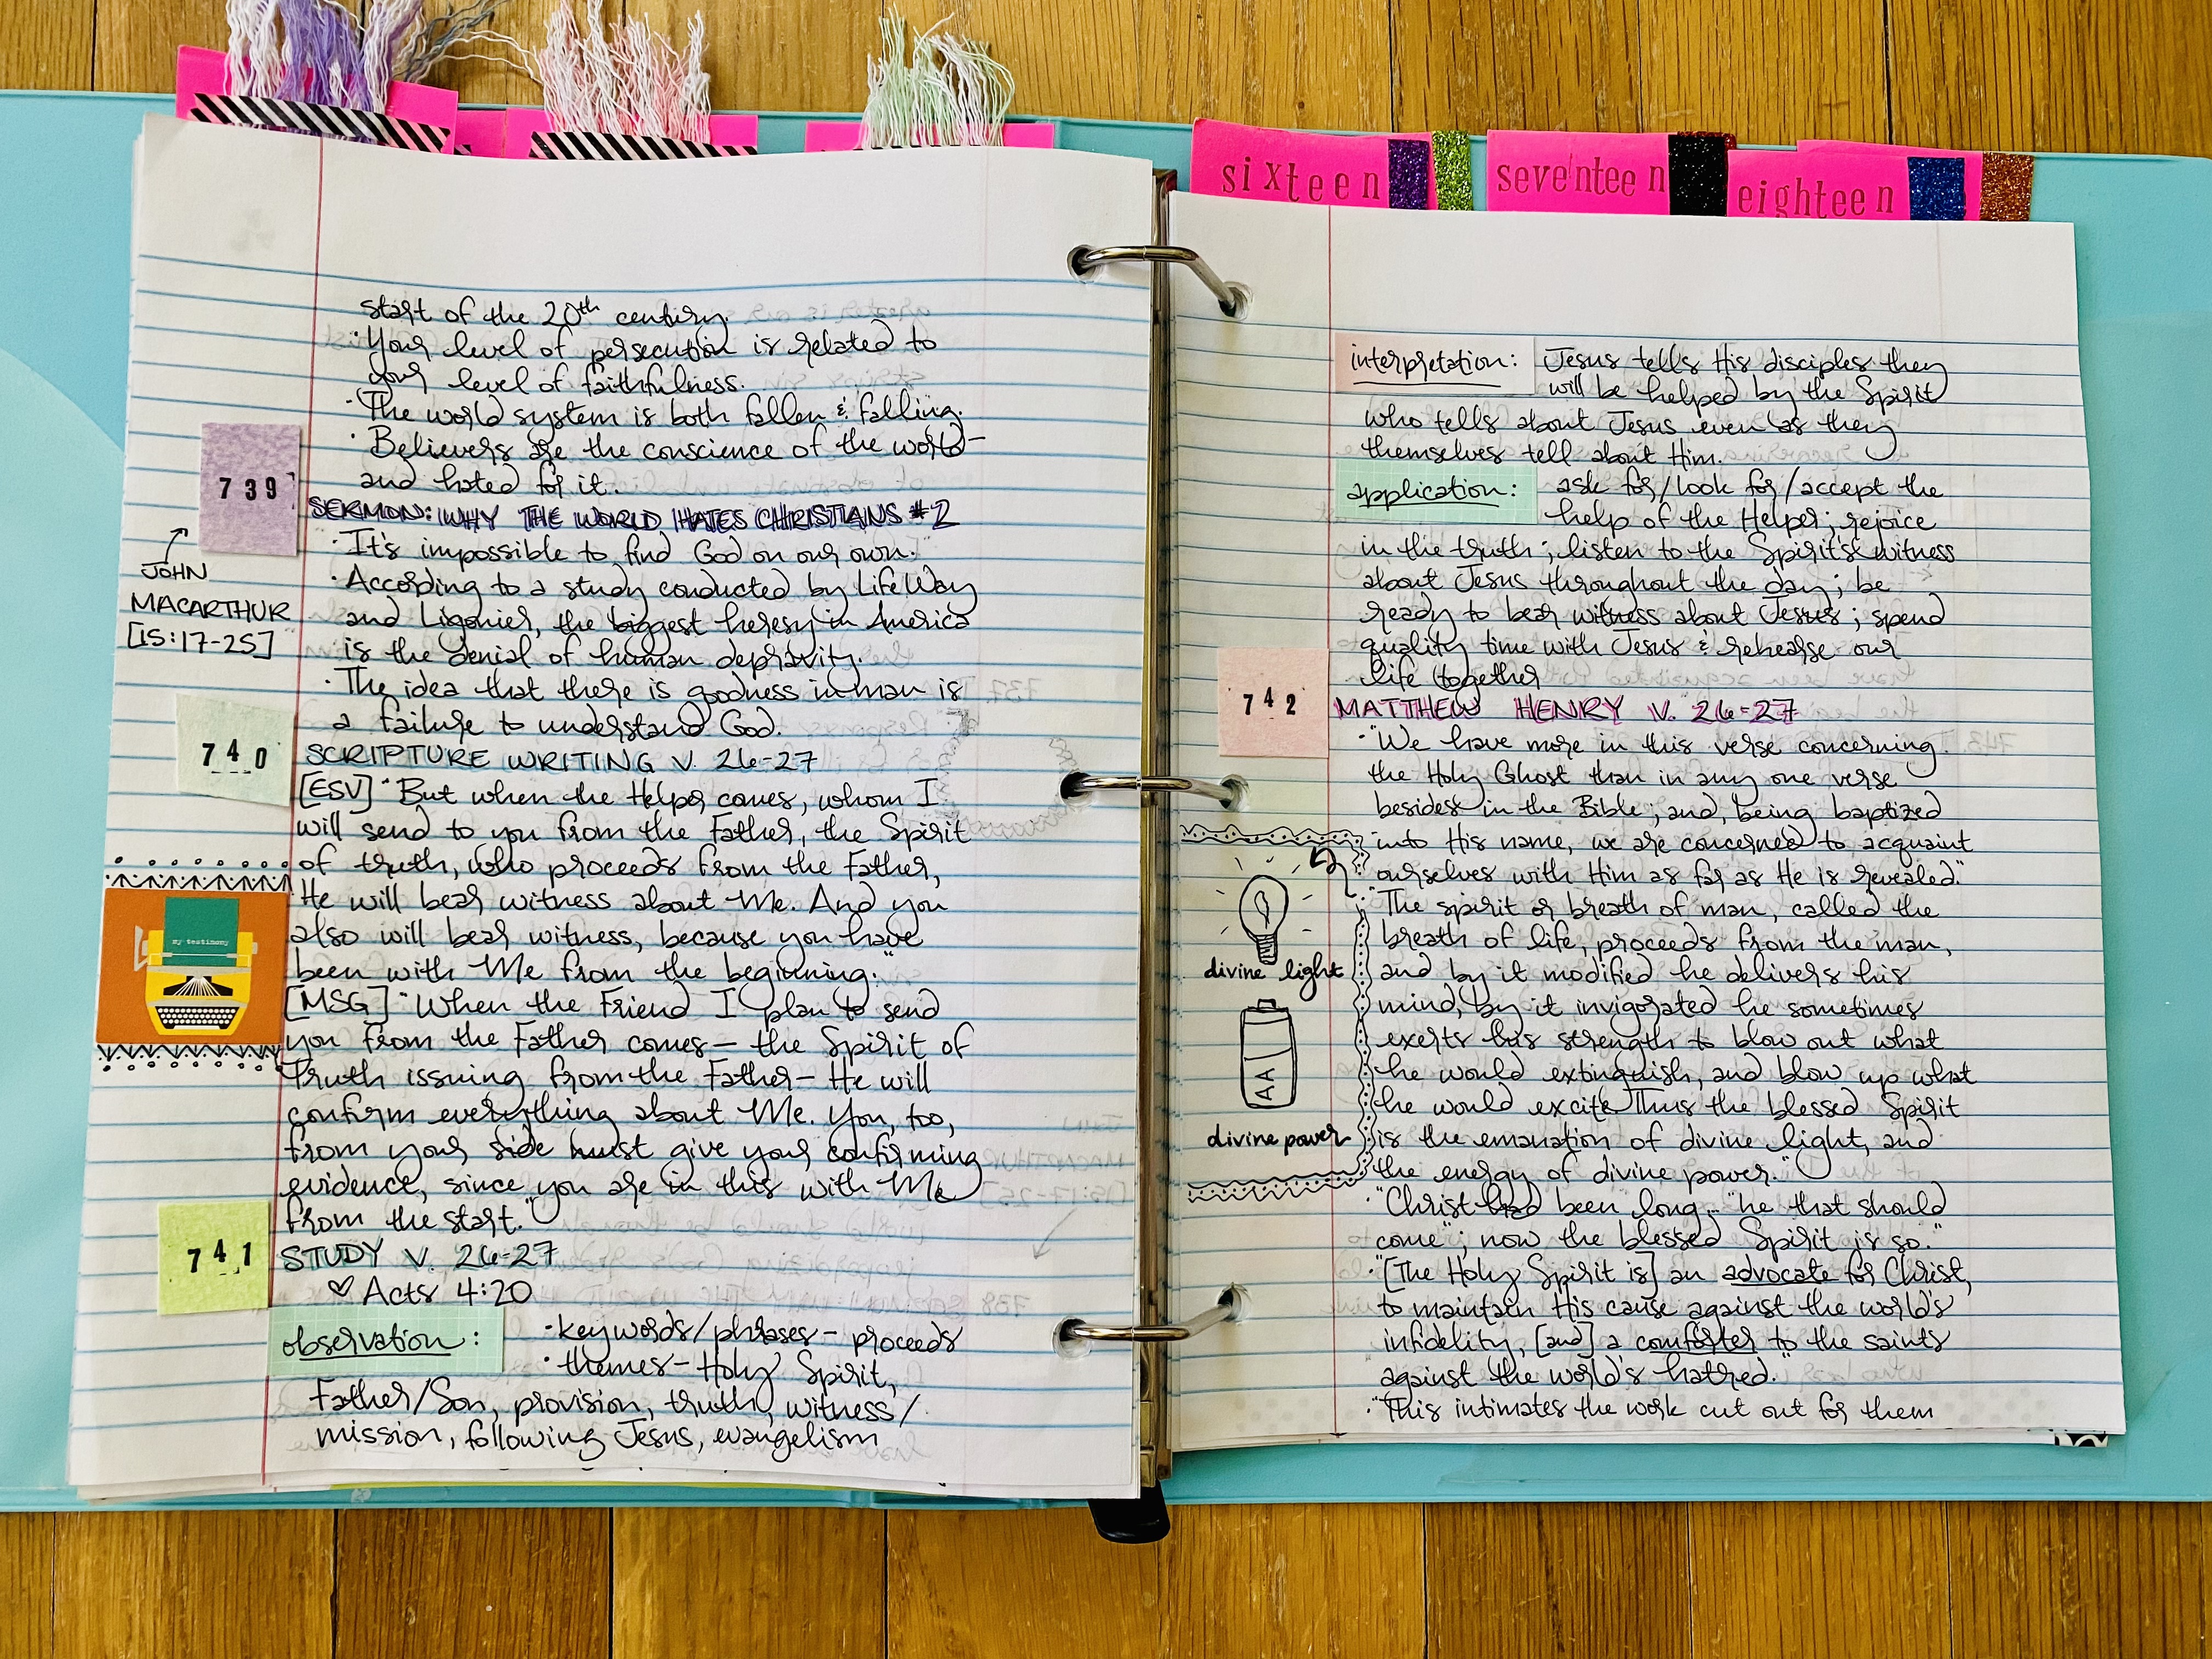 sixteen
seventeen
eighteen
start of the 20th century.
· Your level of persecution is related to
your level of faithfulness.
· The world system is both fallen & falling.
· Believers are the conscience of the world-
and hated for it.
739
SERMON: WHY THE WORLD HATES CHRISTIANS #2
JOHN
MACARTHUR
[15:17-25]
· It's impossible to find God on our own.
· According to a study conducted by LifeWay
and Ligonier, the biggest heresy in America
is the denial of human depravity.
· The idea that there is goodness in man is
a failure to understand God.
740
SCRIPTURE WRITING V. 26-27
[ESV] "But when the Helper comes, whom I
will send to you from the Father, the Spirit
of truth, who proceeds from the Father,
He will bear witness about Me. And you
also will bear witness, because you have
been with Me from the beginning."
my testimony
[MSG] "When the Friend I plan to send
you from the Father comes- the Spirit of
Truth issuing from the Father- He will
confirm everything about Me. You, too,
from your side must give your confirming
evidence, since you are in this with Me
from the start."
741
STUDY V. 26-27
♡ Acts 4:20
observation:
· keywords/phrases- proceeds
· themes- Holy Spirit,
Father/Son, provision, truth, witness/
mission, following Jesus, evangelism
interpretation: Jesus tells His disciples they
will be helped by the Spirit
who tells about Jesus even as they
themselves tell about Him.
application: ask for/look for/accept the
help of the Helper; rejoice
in the truth; listen to the Spirit's witness
about Jesus throughout the day; be
ready to bear witness about Jesus; spend
quality time with Jesus & rehearse our
life together
742
MATTHEW HENRY V. 26-27
· "We have more in this verse concerning
the Holy Ghost than in any one verse
besides in the Bible; and, being baptized
into His name, we are concerned to acquaint
ourselves with Him as far as He is revealed."
· "The spirit or breath of man, called the
breath of life, proceeds from the man,
and by it modified he delivers his
mind, by it invigorated he sometimes
exerts his strength to blow out what
he would extinguish, and blow up what
he would excite. Thus the blessed Spirit
is the emanation of divine light, and
the energy of divine power."
divine light
AA
divine power
· "Christ had been long "he that should
come"; now the blessed Spirit is so."
· "[The Holy Spirit is] an advocate for Christ,
to maintain His cause against the world's
infidelity, [and] a comforter to the saints
against the world's hatred."
· "This intimates the work cut out for them